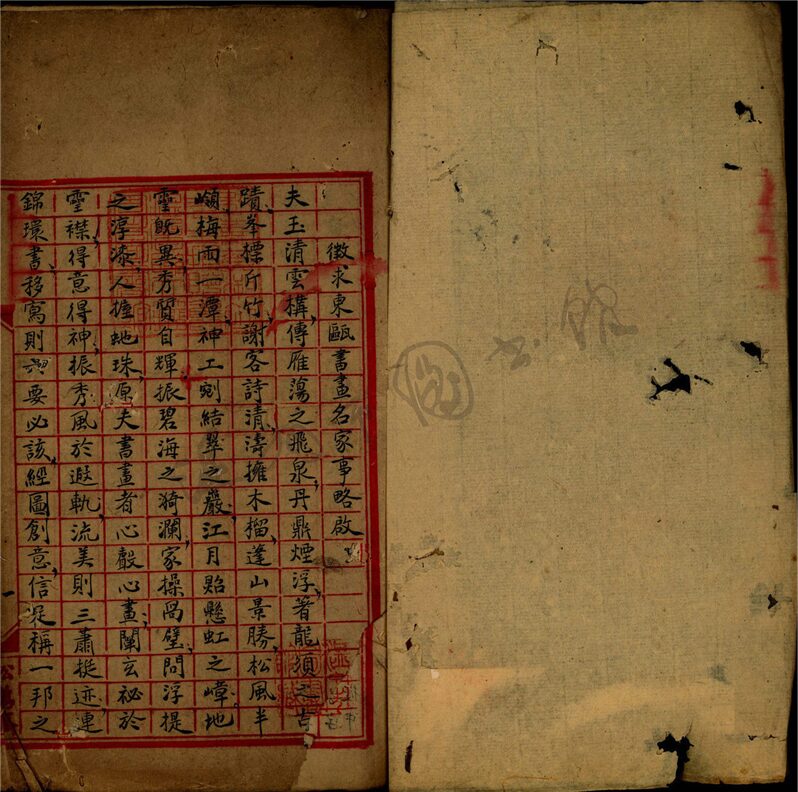 徵求東甌書畫名家事略啟
夫玉清雲構，傳雁蕩之飛泉，丹鼎煙浮，著龍須之古
蹟，峯標斤竹，謝客詩清，濤擁木榴，蓬山景勝，松風半
嶺，梅雨一潭，神工剜結翠之巖，江月貽懸虹之嶂，地
靈既異，秀質自輝，振碧海之漪瀾，家操咼璧，問浮提
之淳漆，人握虵珠，原夫書畫者心聲心畫，闡玄祕於
靈襟，得意得神，振秀風於遐軌，流美則三蕭挺迹，連
錦環書，移寫則要必該，經圖創意，信足稱一邦之
一